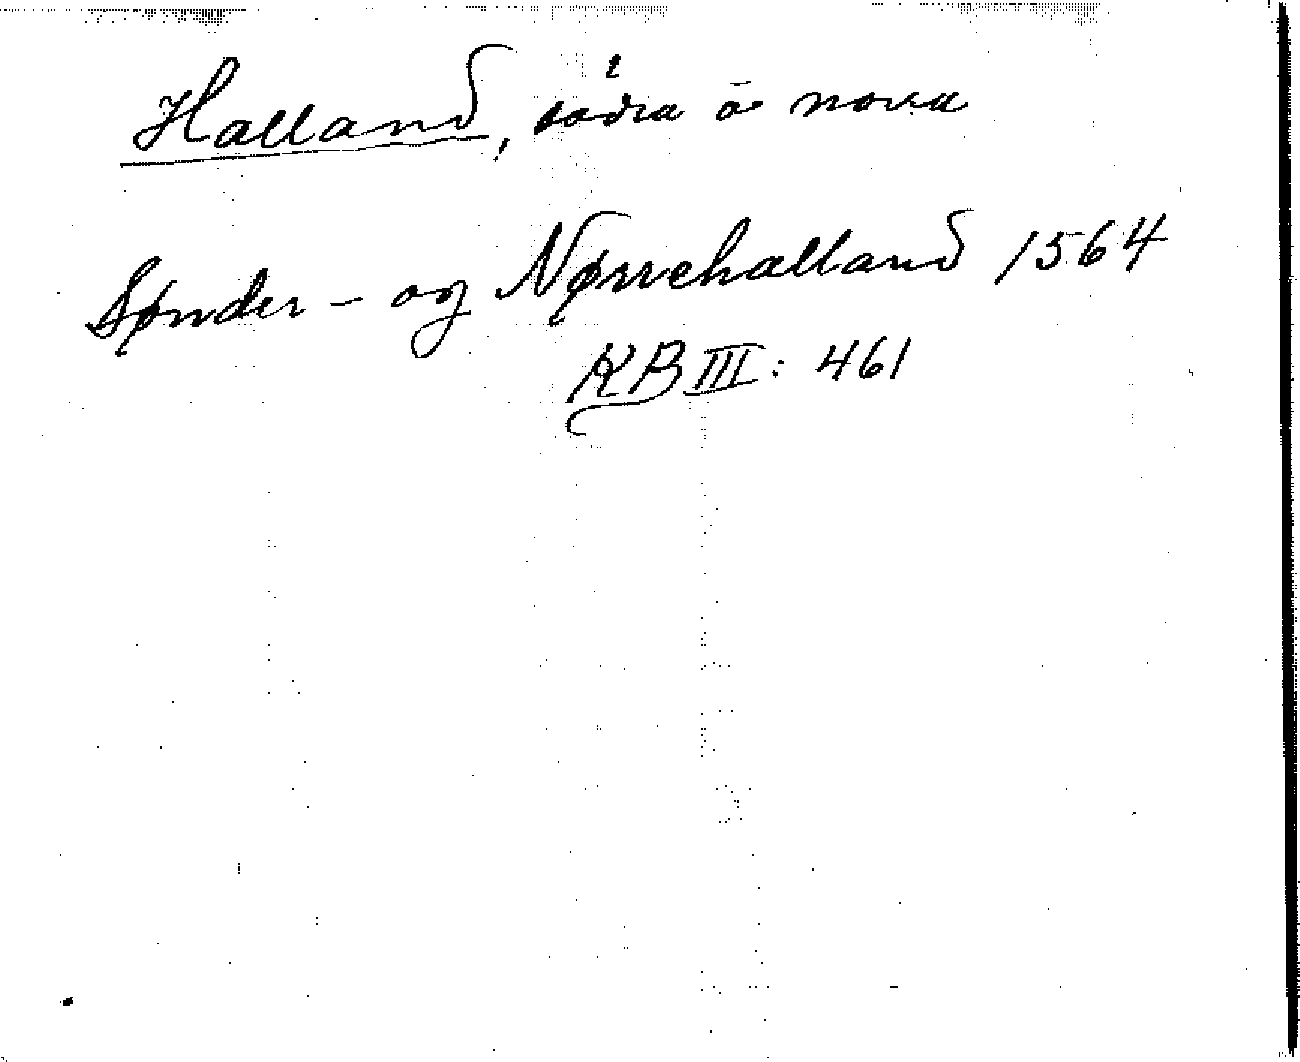 Halland, södra o norra
Sønder- og Nørrehalland 1564
KB III: 461